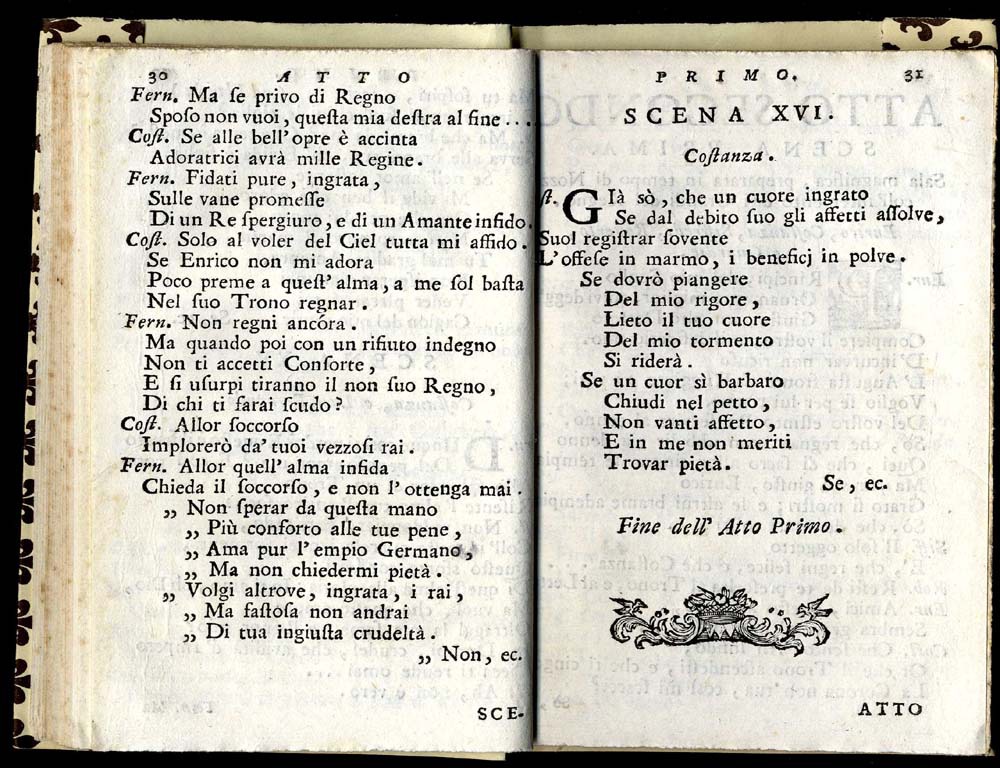 30 ATTO
Fern. Ma ſe privo di Regno
Spoſo non vuoi, queſta mia deſtra al fine ...
Coſt. Se alle bell' opre è accinta
Adoratrici avrà mille Regine.
Fern. Fidati pure, ingrata,
Sulle vane promeſſe
Di un Re ſpergiuro, e di un Amante infido.
Coſt. Solo al voler del Ciel tutta mi affido.
Se Enrico non mi adora
Poco preme a queſt' alma, a me ſol baſta
Nel ſuo Trono regnar.
Fern. Non regni ancóra.
Ma quando poi con un rifiuto indegno
Non ti accetti Conſorte,
E ſi uſurpi tiranno il non ſuo Regno,
Di chi ti farai ſcudo?
Coſt. Allor ſoccorſo
Implorerò da' tuoi vezzoſi rai.
Fern. Allor quell' alma infida
Chieda il ſoccorſo, e non l' ottenga mai.
„ Non ſperar da queſta mano
„ Più conforto alle tue pene,
„ Ama pur l' empio Germano,
„ Ma non chiedermi pietà.
„ Volgi altrove, ingrata, i rai,
„ Ma faſtoſa non andrai
„ Di tua ingiuſta crudeltà.
„ Non, ec.
SCE-
PRIMO. 31
SCENA XVI.
Coſtanza.
ſt. GIà sò, che un cuore ingrato
Se dal debito ſuo gli affetti aſſolve,
Suol regiſtrar ſovente
L'offeſe in marmo, i beneficj in polve.
Se dovrò piangere
Del mio rigore,
Lieto il tuo cuore
Del mio tormento
Si riderà.
Se un cuor sì barbaro
Chiudi nel petto,
Non vanti affetto,
E in me non meriti
Trovar pietà.
Se, ec.
Fine dell' Atto Primo.
ATTO